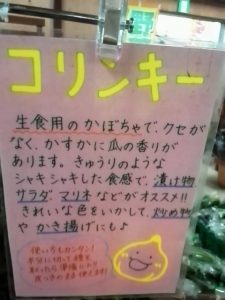 コリンキー
生食用のかぼちゃで、クセが
なく、かすかに瓜の香りが
あります。きゅうりのような
シャキシャキした食感で、漬け物
サラダ、マリネなどがオススメ!!
きれいな色をいかして、炒め物
や かき揚げにもよ
使い方もカンタン!
半分に切って種を
取ったら
皮つきのまま使えます!